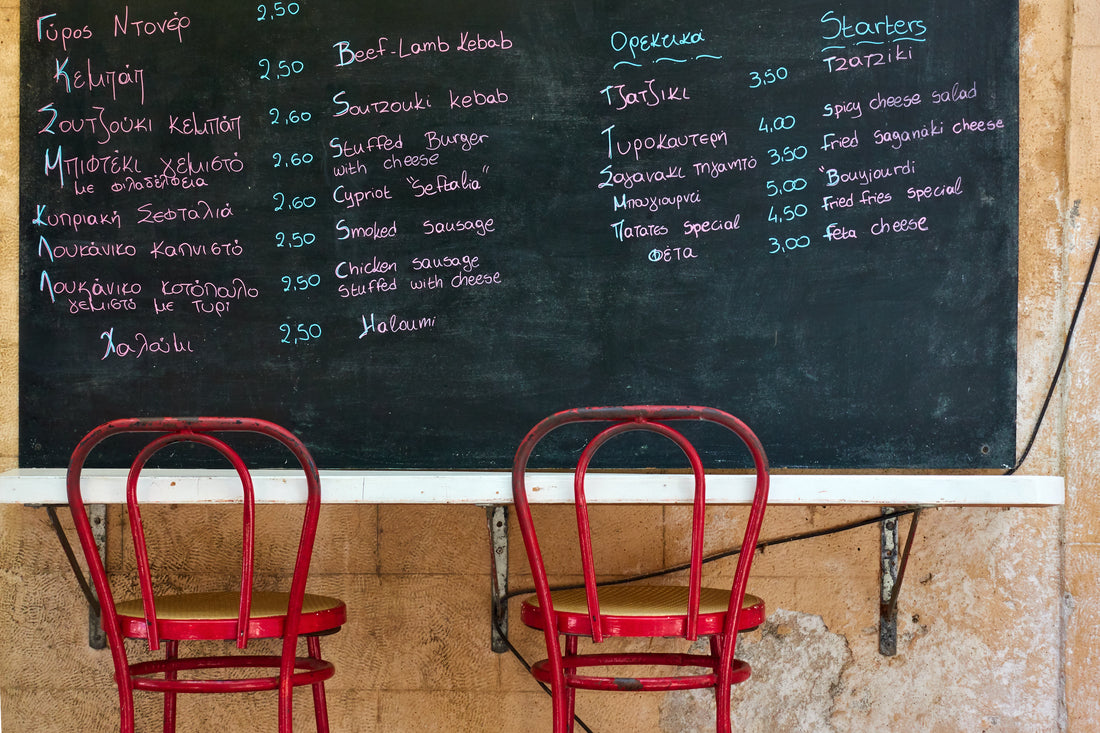 Γύρος Ντονέρ 2,50
Κεμπάπ 2,50 Beef-Lamb Kebab
Σουτζούκι κεμπάπ 2,60 Soutzouki kebab
Μπιφτέκι γεμιστό 2,60 Stuffed Burger
με φιλαδέλφεια with cheese
Κυπριακή Σεφταλιά 2,60 Cypriot "Seftalia"
Λουκάνικο καπνιστό 2,50 Smoked sausage
Λουκάνικο κοτόπουλο 2,50 Chicken sausage
γεμιστό με τυρί stuffed with cheese
Χαλούμι 2,50 Haloumi
Ορεκτικά Starters
Τζατζίκι 3,50 Tzatziki
Τυροκαυτερή 4,00 Spicy cheese salad
Σαγανάκι τηγανητό 3,50 Fried Saganaki cheese
Μπουγιουρντί 5,00 "Boujourdi
Πατάτες special 4,50 Fried fries special
Φέτα 3,00 Feta cheese